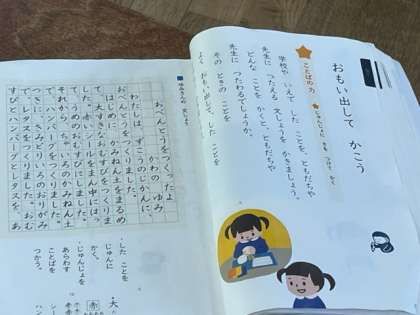 おもい出して かこう
ことばの力
じゅんじょを 考え つけて かく
学校や いえで した ことを、ともだちや
先生に つたえる 文しょうを かきましょう。
どんな ことを かくと、ともだちや
先生に つたわるでしょうか。
その ときの ことを
よく おもい出して、した ことを
おべんとうをつくったよ
かわの ゆみ
わたしは、ずこうのじかんに、
おべんとうをつくりました。
はじめに、かみねん土をまるめ
て、大すきなおむすびをつくりま
した。赤いシールをまん中にはっ
て、うめのおむすびにしました。
それから、ちゃいろのかみねん土
で、ハンバーグをつくりました。
つぎに、きみどりいろのおりがみ
で、レタスをつくりました。おむ
すびと、ハンバーグとレタスを
・した ことを
かく。
・じゅんじょを
あらわす
ことばを
つかう。
赤